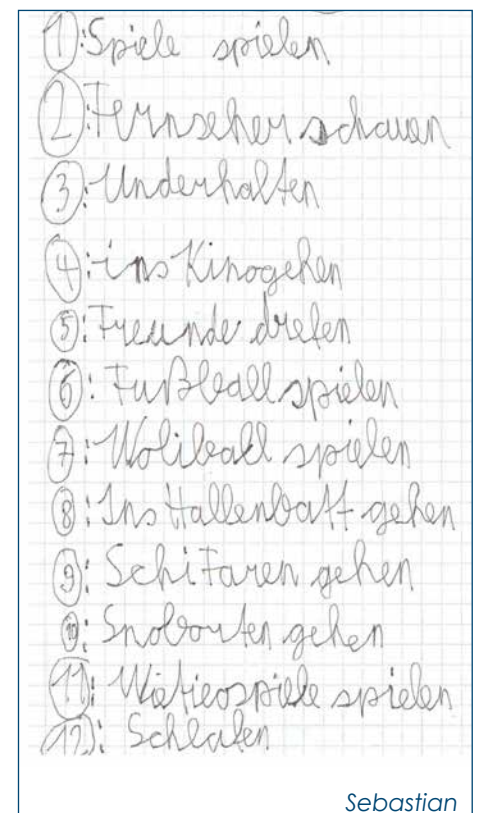 1: Spiele spielen
2: Fernseher schauen
3: Underhalten
4: ins Kinogehen
5: Freunde drefen
6: Fußball spielen
7: Woliball spielen
8: Ins Hallenbatt gehen
9: Schifaren gehen
10: Snoborten gehen
11: Wiedieospiele spielen
12: Schlafen
Sebastian